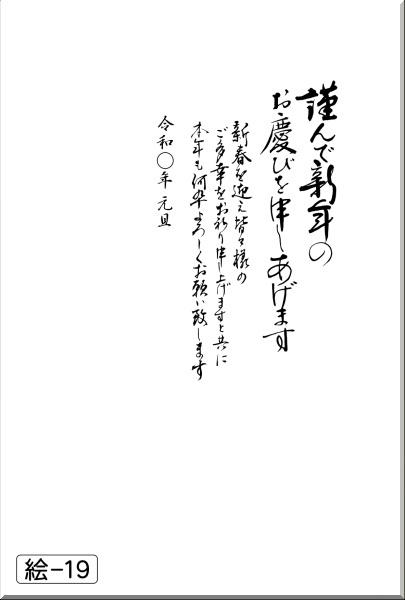 謹んで新年の
お慶びを申しあげます
新春を迎え皆々様の
ご多幸をお祈り申し上げますと共に
本年も何卆よろしくお願い致します
令和〇年 元旦
絵-19